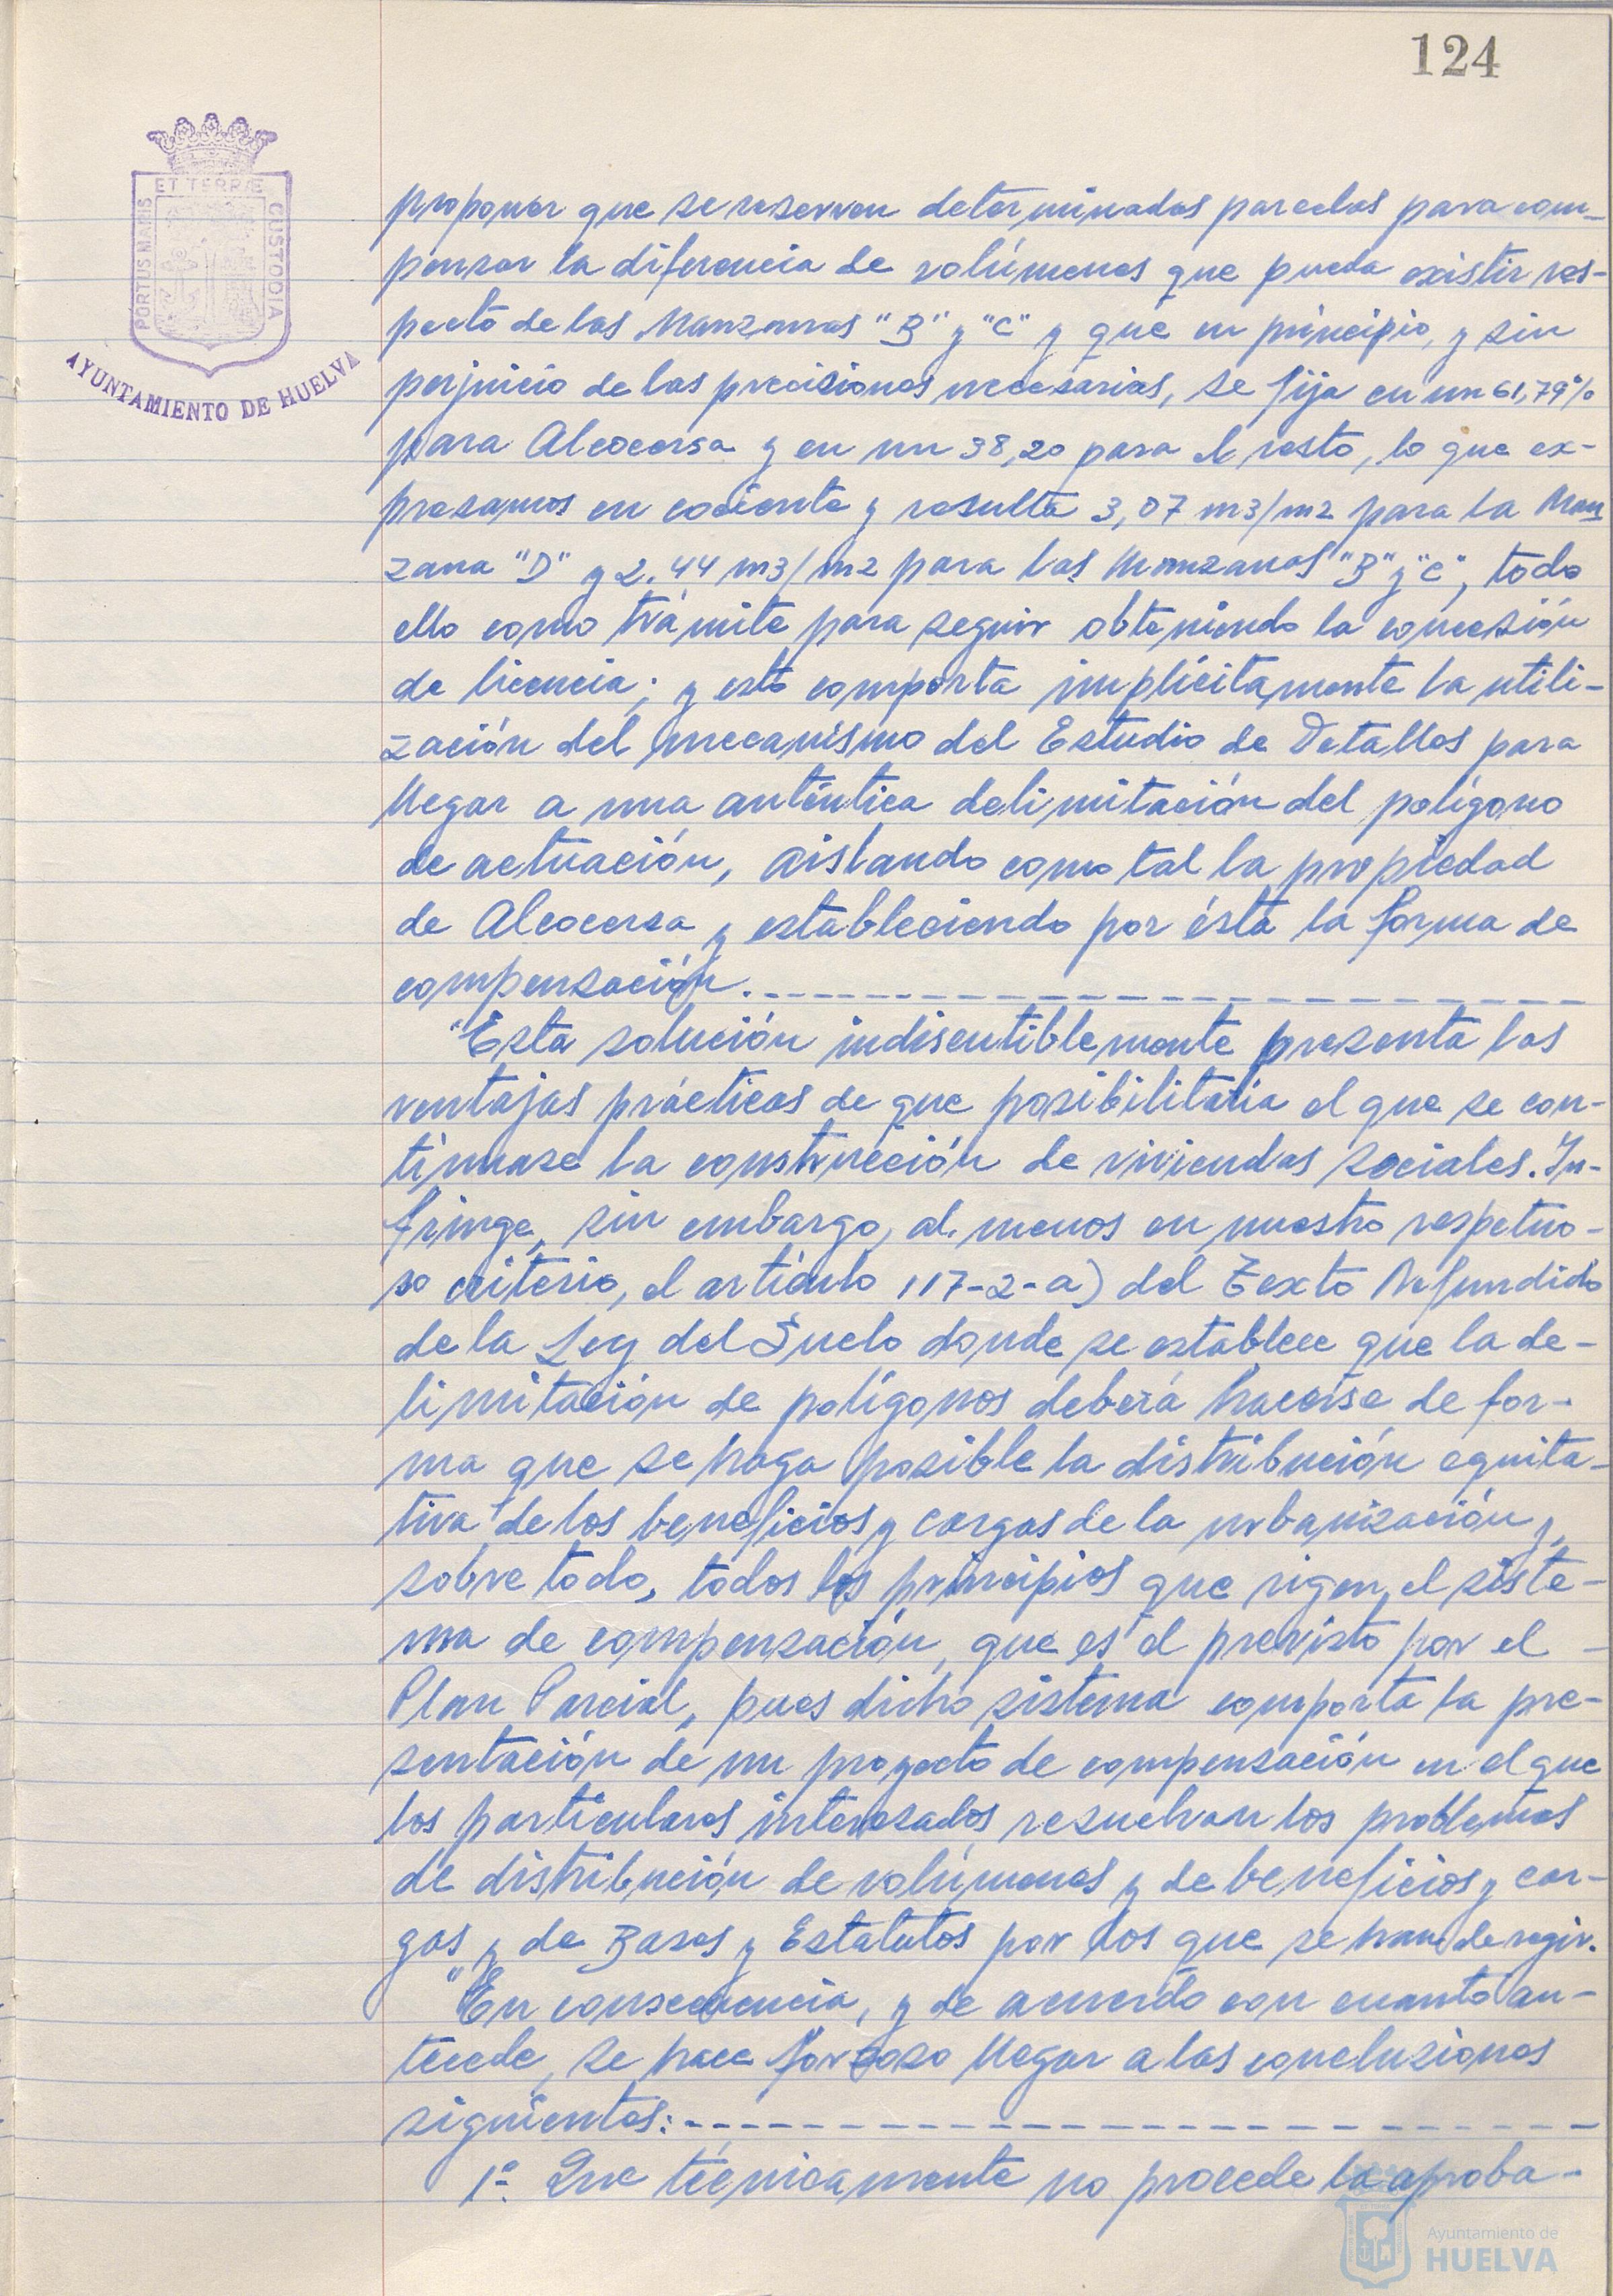 124
ET TERRÆ
PORTUS MARIS
CUSTODIA
AYUNTAMIENTO DE HUELVA
proponer que se reserven determinadas parcelas para com-
pensar la diferencia de volúmenes que pueda existir res-
pecto de las Manzanas "B" y "C" y que en principio, y sin
perjuicio de las precisiones necesarias, se fija en un 61,79%
para Alcocersa y en un 38,20 para el resto, lo que ex-
presamos en cociente y resulta 3,07 m3/m2 para la Man
zana "D" y 2.44 m3/m2 para las Manzanas "B" y "C", todo
ello como trámite para seguir obteniendo la concesión
de licencia; y esto comporta implícitamente la utili-
zación del mecanismo del Estudio de Detalles para
llegar a una auténtica delimitación del polígono
de actuación, aislando como tal la propiedad
de Alcocersa y estableciendo por ésta la forma de
compensación.
"Esta solución indiscutiblemente presenta las
ventajas prácticas de que posibilitaría el que se con-
tinuase la construcción de viviendas sociales. In-
fringe, sin embargo, al menos en nuestro respetuo-
so criterio, el artículo 117-2-a) del Texto Refundido
de la Ley del Suelo donde se establece que la de-
limitación de polígonos deberá hacerse de for-
ma que se haga posible la distribución equita-
tiva de los beneficios y cargas de la urbanización y,
sobre todo, todos los principios que rigen el siste-
ma de compensación, que es el previsto por el
Plan Parcial, pues dicho sistema comporta la pre-
sentación de un proyecto de compensación en el que
los particulares interesados resuelvan los problemas
de distribución de volúmenes y de beneficios y car-
gas y de Bases y Estatutos por los que se han de regir.
"En consecuencia, y de acuerdo con cuanto an-
tecede, se hace forzoso llegar a las conclusiones
siguientes:
1º. Que técnicamente no procede la aproba-
Ayuntamiento de
HUELVA